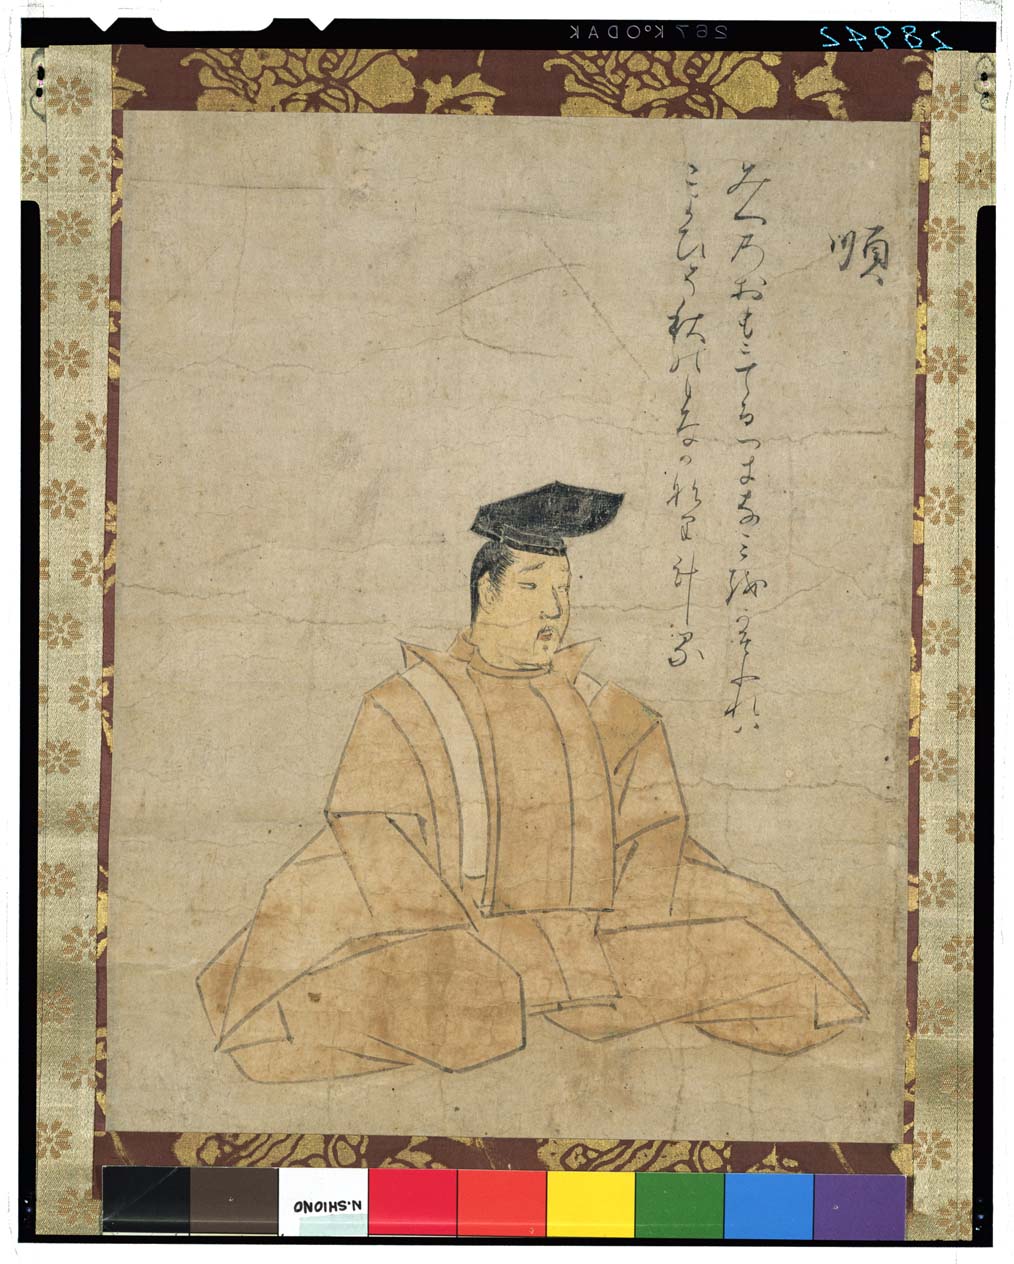 KODAK
順
みつのおもにてるつきなみをかそふれは
こよひそ秋のもなかなりける
N.SHIONO